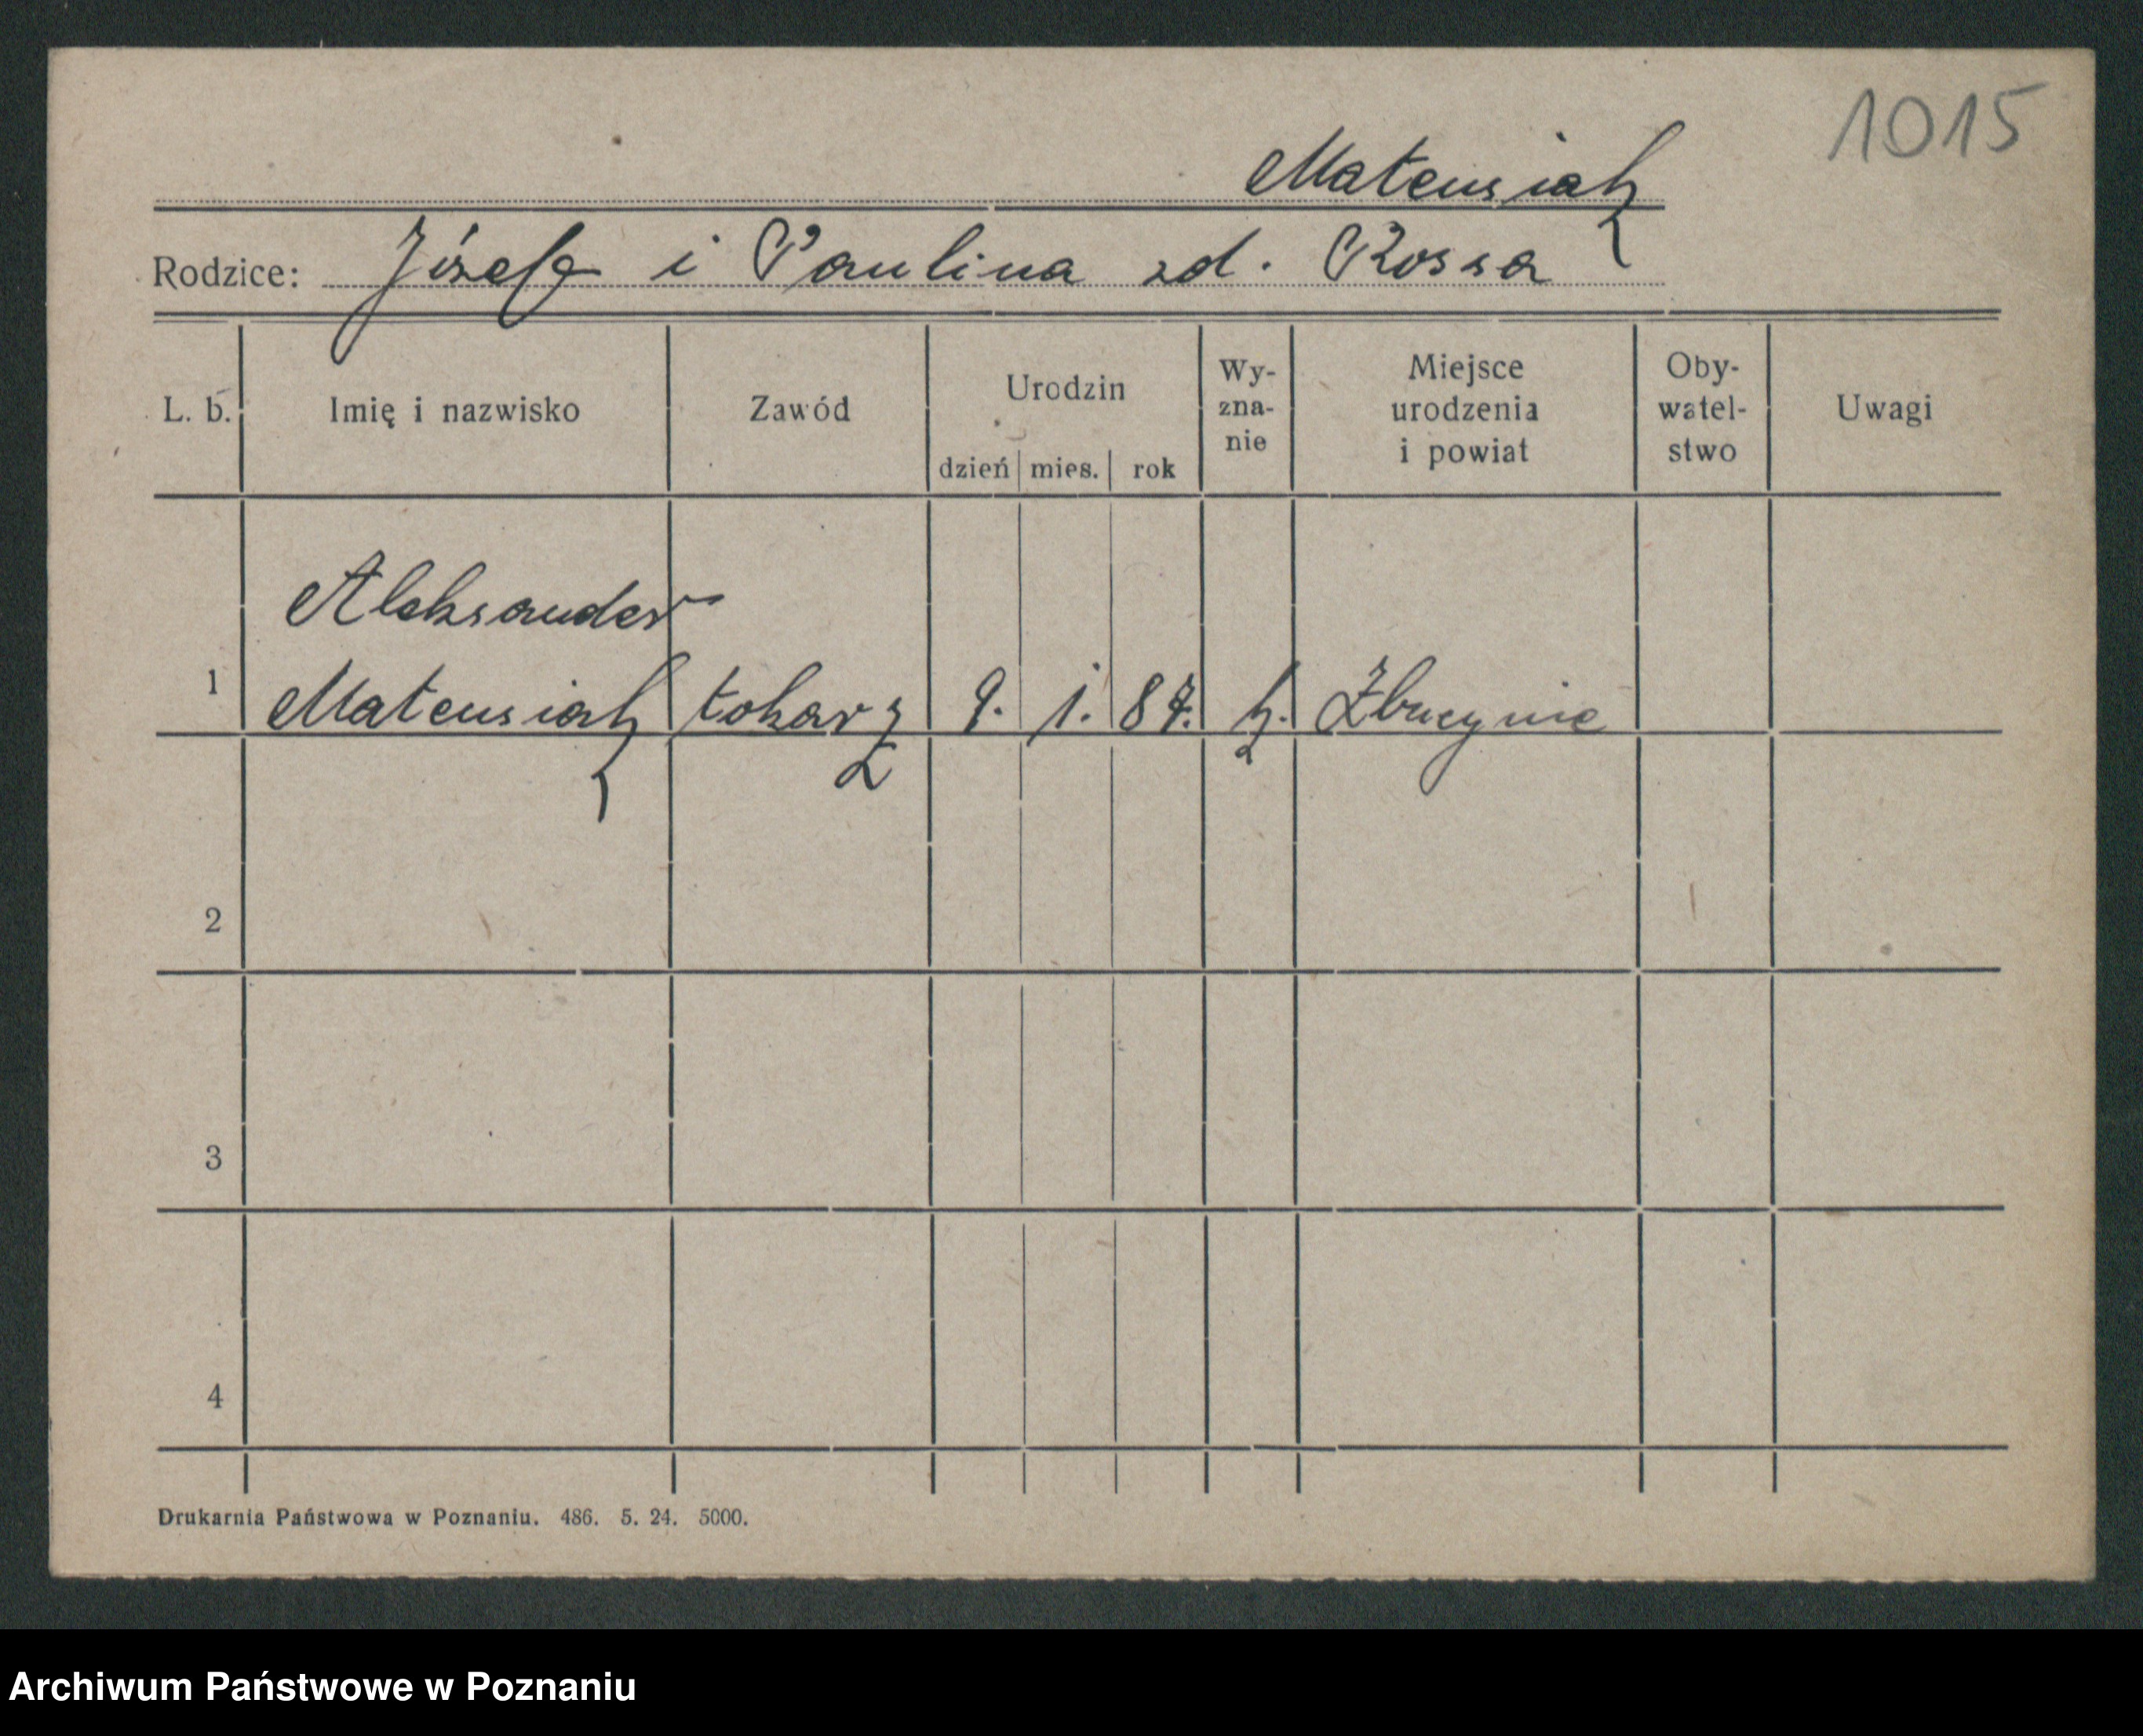 1015
Mateusiak
Rodzice: Józef i Paulina zd. Rossa
L. b. Imię i nazwisko Zawód Urodzin dzień mies. rok Wy-zna-nie Miejsce urodzenia i powiat Oby-watel-stwo Uwagi
Aleksander
1 Mateusiak tokarz 9. 1. 87. k.
2
3
4
Drukarnia Państwowa w Poznaniu. 486. 5. 24. 5000.
Archiwum Państwowe w Poznaniu